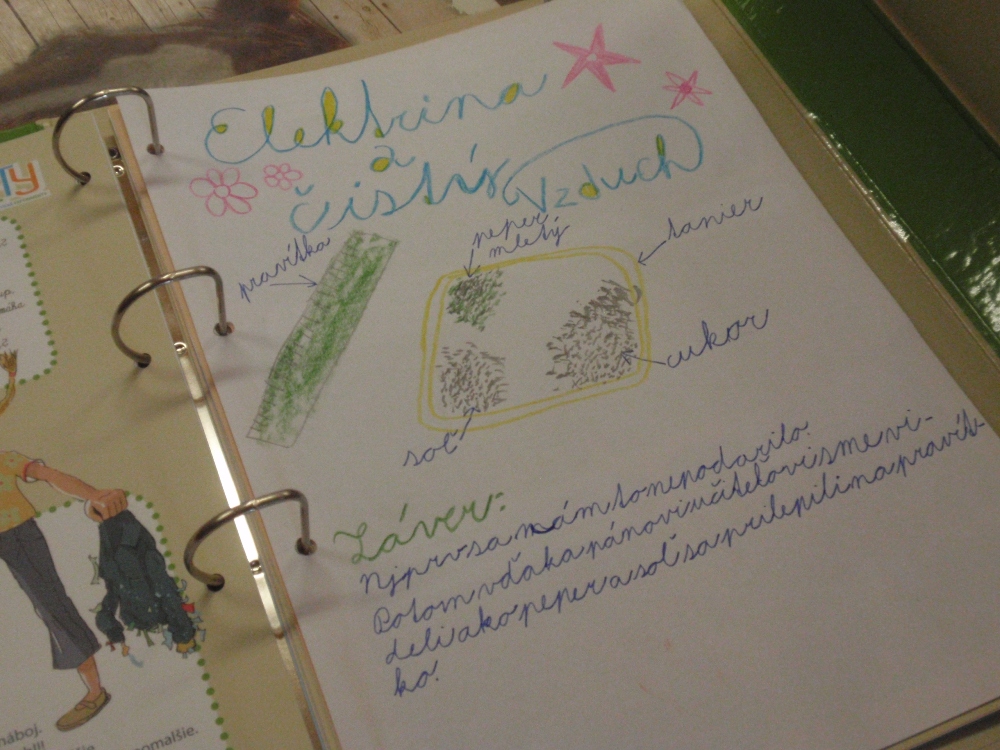 Elektrina
a
čistý Vzduch
pravítko
peper
mletý
tanier
cukor
soľ
Záver:
Njprv sa nám to nepodarilo.
Potom vďaka pánovi učiteľovi sme vi-
deli ako peper a soľ sa prilepili na pravít-
ko.
TY
náboj.
pomalšie.